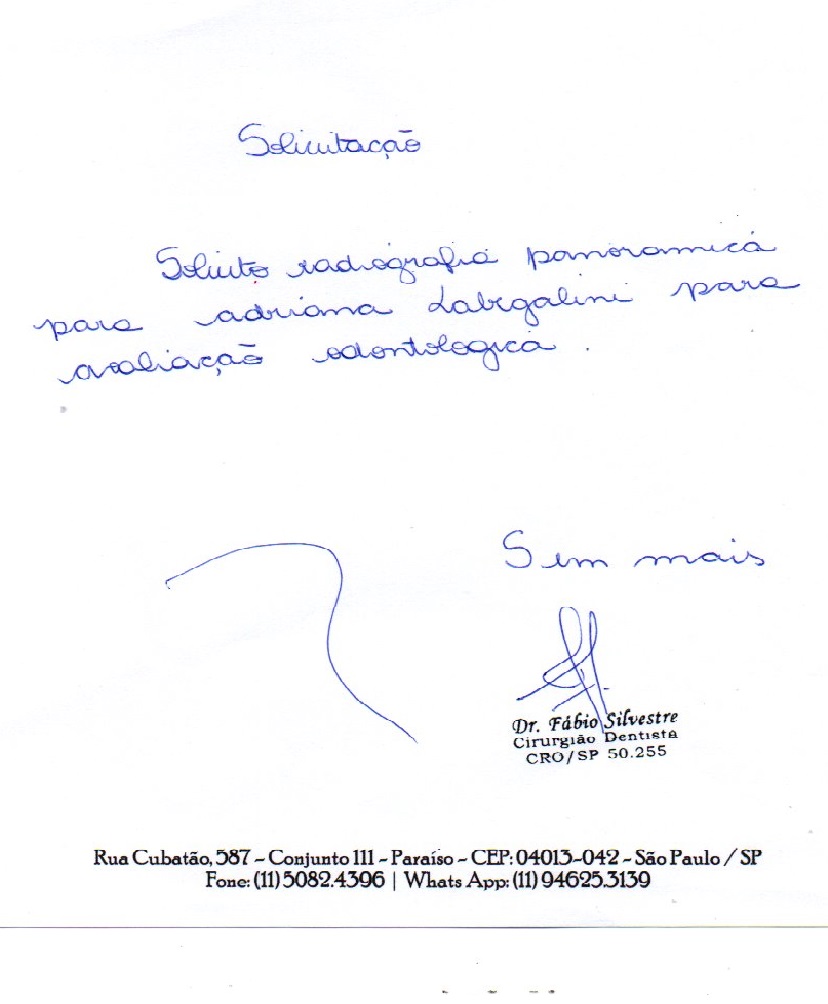 Solicitação
Solicito radiografia panoramica
para adriana Labegalini para
avaliação odontologica.
Sem mais
Dr. Fábio Silvestre
Cirurgião Dentista
CRO/SP 50.255
Rua Cubatão, 587 - Conjunto 111 - Paraíso - CEP: 04013-042 - São Paulo / SP
Fone: (11) 5082.4396 | Whats App: (11) 94625.3139